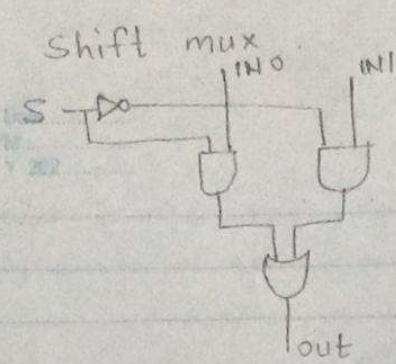 Shift mux
IN0
IN1
S
out